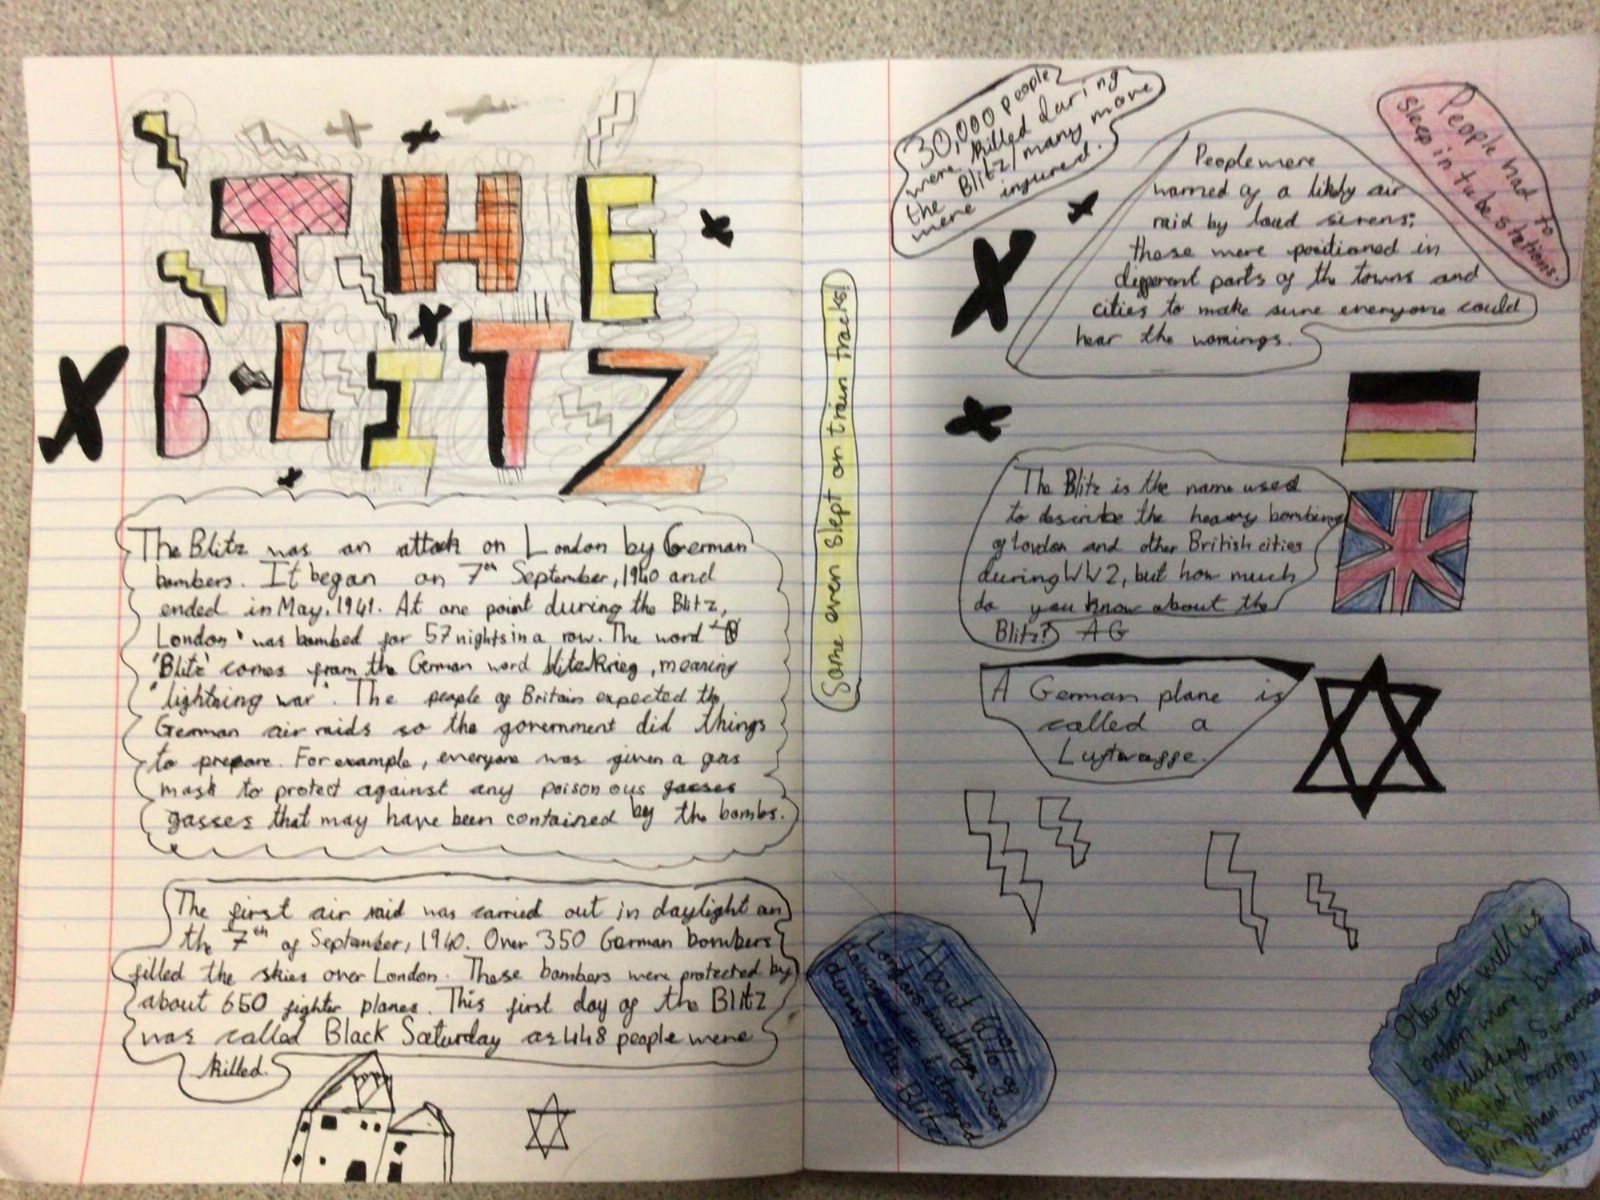 THE
BLITZ
The Blitz was an attack on London by German
bombers. It began on 7th September, 1940 and
ended in May, 1941. At one point during the Blitz,
London was bombed for 57 nights in a row. The word
'Blitz' comes from the German word blitzkrieg, meaning
'lightning war'. The people of Britain expected the
German air raids so the government did things
to prepare. For example, everyone was given a gas
mask to protect against any poisonous gasses
gasses that may have been contained by the bombs.
The first air raid was carried out in daylight on
the 7th of September, 1940. Over 350 German bombers
filled the skies over London. These bombers were protected by
about 650 fighter planes. This first day of the Blitz
was called Black Saturday as 448 people were
killed.
Some even slept on train tracks!
30,000 people
were killed during
the Blitz/many more
were injured.
People were
warned of a likely air
raid by loud sirens;
these were positioned in
different parts of the towns and
cities to make sure everyone could
hear the warnings.
People had to
sleep in tube stations.
The Blitz is the name used
to describe the heavy bombing
of London and other British cities
during WW2, but how much
do you know about the
Blitz? AG
A German plane is
called a
Luftwaffe.
About 60% of
London's buildings were
damaged or destroyed
during the Blitz
Other as well as
London were bombed
including, Swansea
Bristol,
Birmingham and
Liverpool